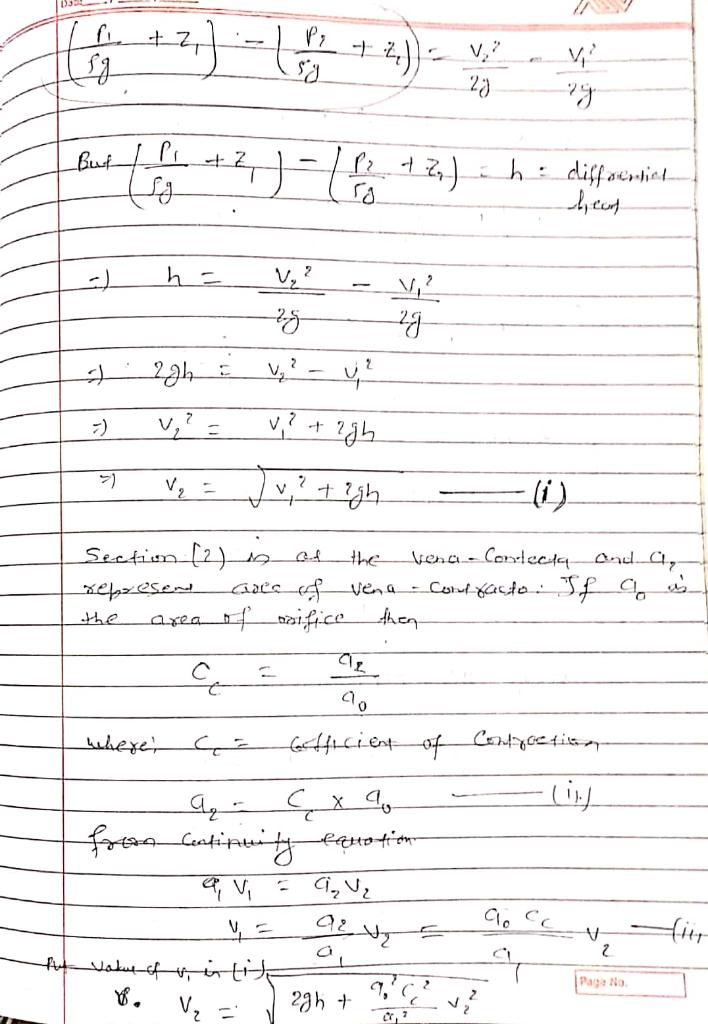 (P₁/ρg + Z₁) - (P₂/ρg + Z₂) = V₂²/2g - V₁²/2g
But (P₁/ρg + Z₁) - (P₂/ρg + Z₂) = h = differential
head
=) h = V₂²/2g - V₁²/2g
=) 2gh = V₂² - V₁²
=) V₂² = V₁² + 2gh
=) V₂ = √(V₁² + 2gh) — (i)
Section (2) is at the vena-Contecta and a₂
represent area of vena - Contracta. If a₀ is
the area of orifice then
C_c = a₂/a₀
where; C_c = Cofficient of Contraction
a₂ = C_c x a₀ — (ii)
from Continuity equation
a₁V₁ = a₂V₂
V₁ = a₂/a₁ V₂ = a₀C_c/a₁ V₂ — (iii
Put value of v₁ in (i)
V₂ = √(2gh + a₀²C_c²/a₁² V₂²
Page No.